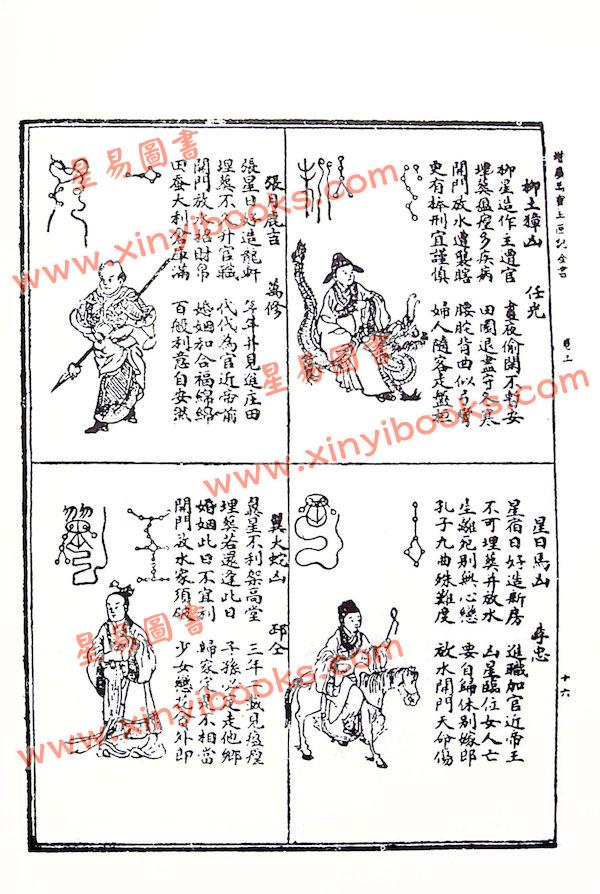 增廣玉
上
匣記全書
卷上
十六
柳土獐凶 任光
柳星造作主遭官
晝夜偷閉不暫安
埋葬瘟瘟多疾病
田園退盡守冬寒
開門放水遭聾瞎
腰駝背曲似弓彎
更有棒刑宜謹慎
婦人隨客走盤桓
張月鹿吉 萬修
張星日好造龍軒
年年并見進庄田
埋葬不久升官職
代代為官近帝前
開門放水招財帛
婚姻和合福綿綿
田蚕大利倉庫滿
百般利意自安然
星日馬凶 李忠
星宿日好造新房
進職加官近帝王
不可埋葬并放水
凶星臨位女人亡
生離死別無心戀
要自歸休別嫁郎
孔子九曲殊難度
放水開門天命傷
翼火蛇凶 邳仝
翼星不利架高堂
三年
見瘟瘟
埋葬若還逢此日
子孫
走他鄉
婚姻此日不宜利
歸家
不相當
開門放水家須破
少女戀
外郎
星易圖書
www.xinyibooks.com
星易圖書
www.xinyibooks.com
星易圖書
www.xinyibooks.com